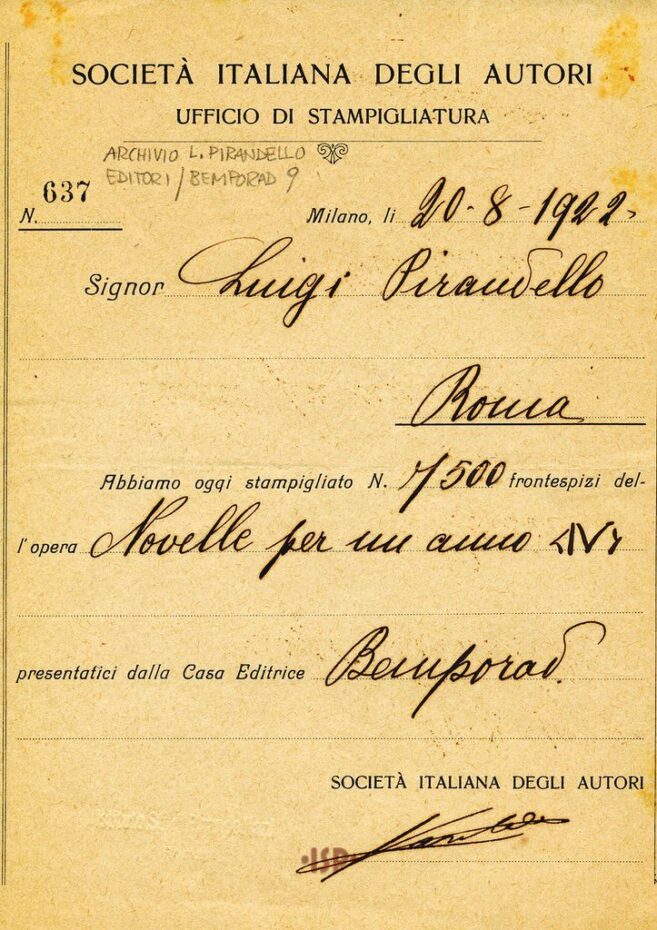 SOCIETÀ ITALIANA DEGLI AUTORI
UFFICIO DI STAMPIGLIATURA
ARCHIVIO L. PIRANDELLO
EDITORI / BEMPORAD 9
N. 637
Milano, li 20-8-1922
Signor Luigi Pirandello
Roma
Abbiamo oggi stampigliato N. 7500 frontespizi del-
l'opera Novelle per un anno IV
presentatici dalla Casa Editrice Bemporad.
SOCIETÀ ITALIANA DEGLI AUTORI
ISP